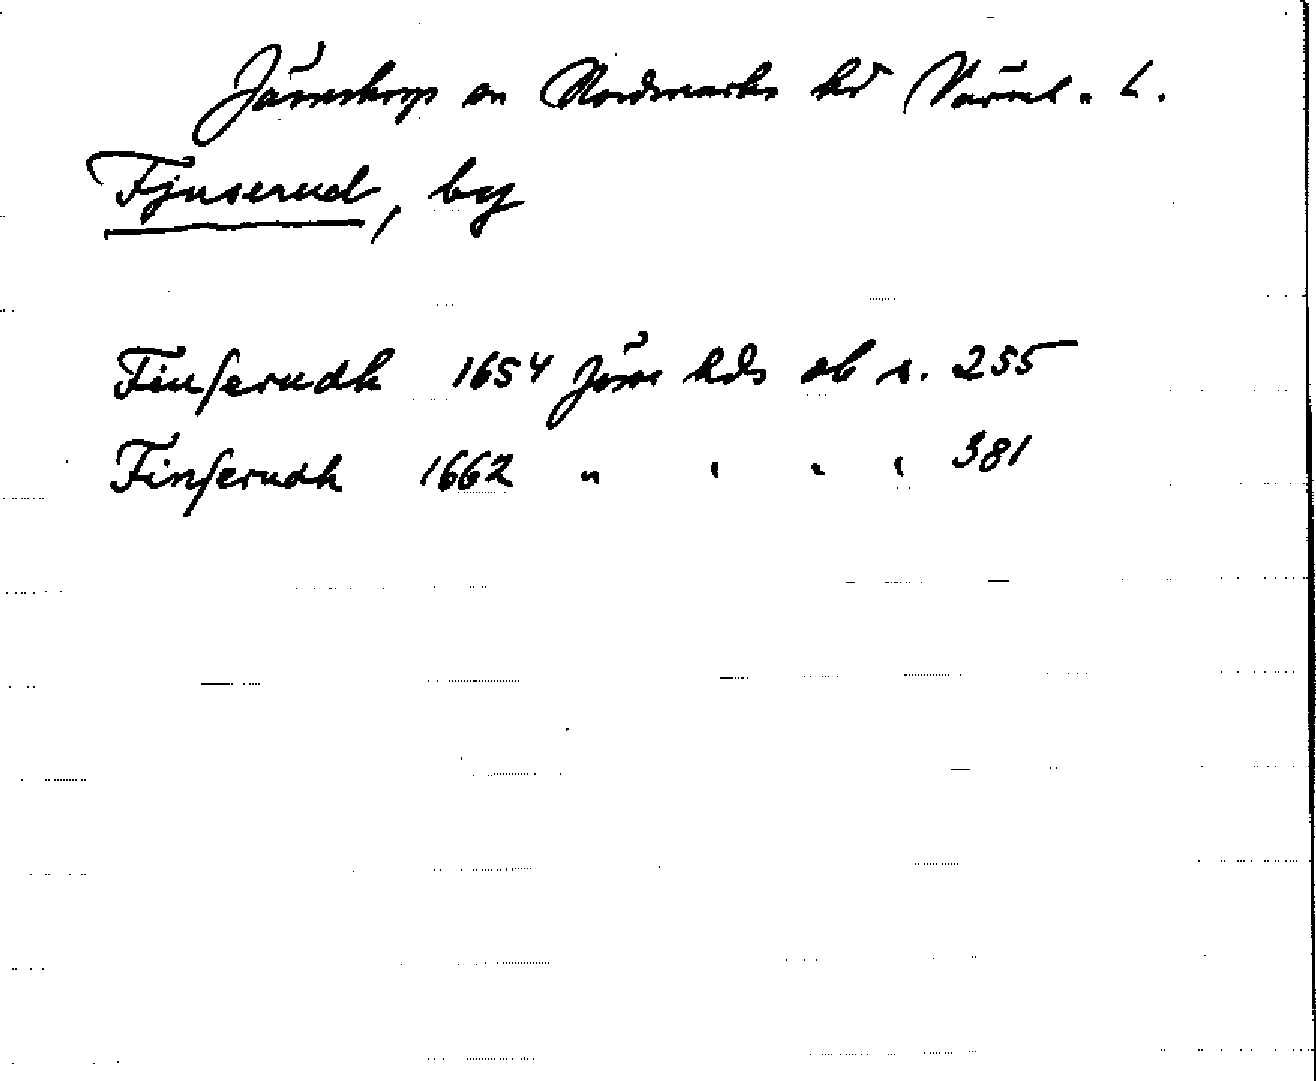 Järnskogs sn Nordmarks hd Värml. L.
Fjuserud, by
Finserudh 1654 Jöse hds db s. 255
Finserudh 1662 " " " " 381